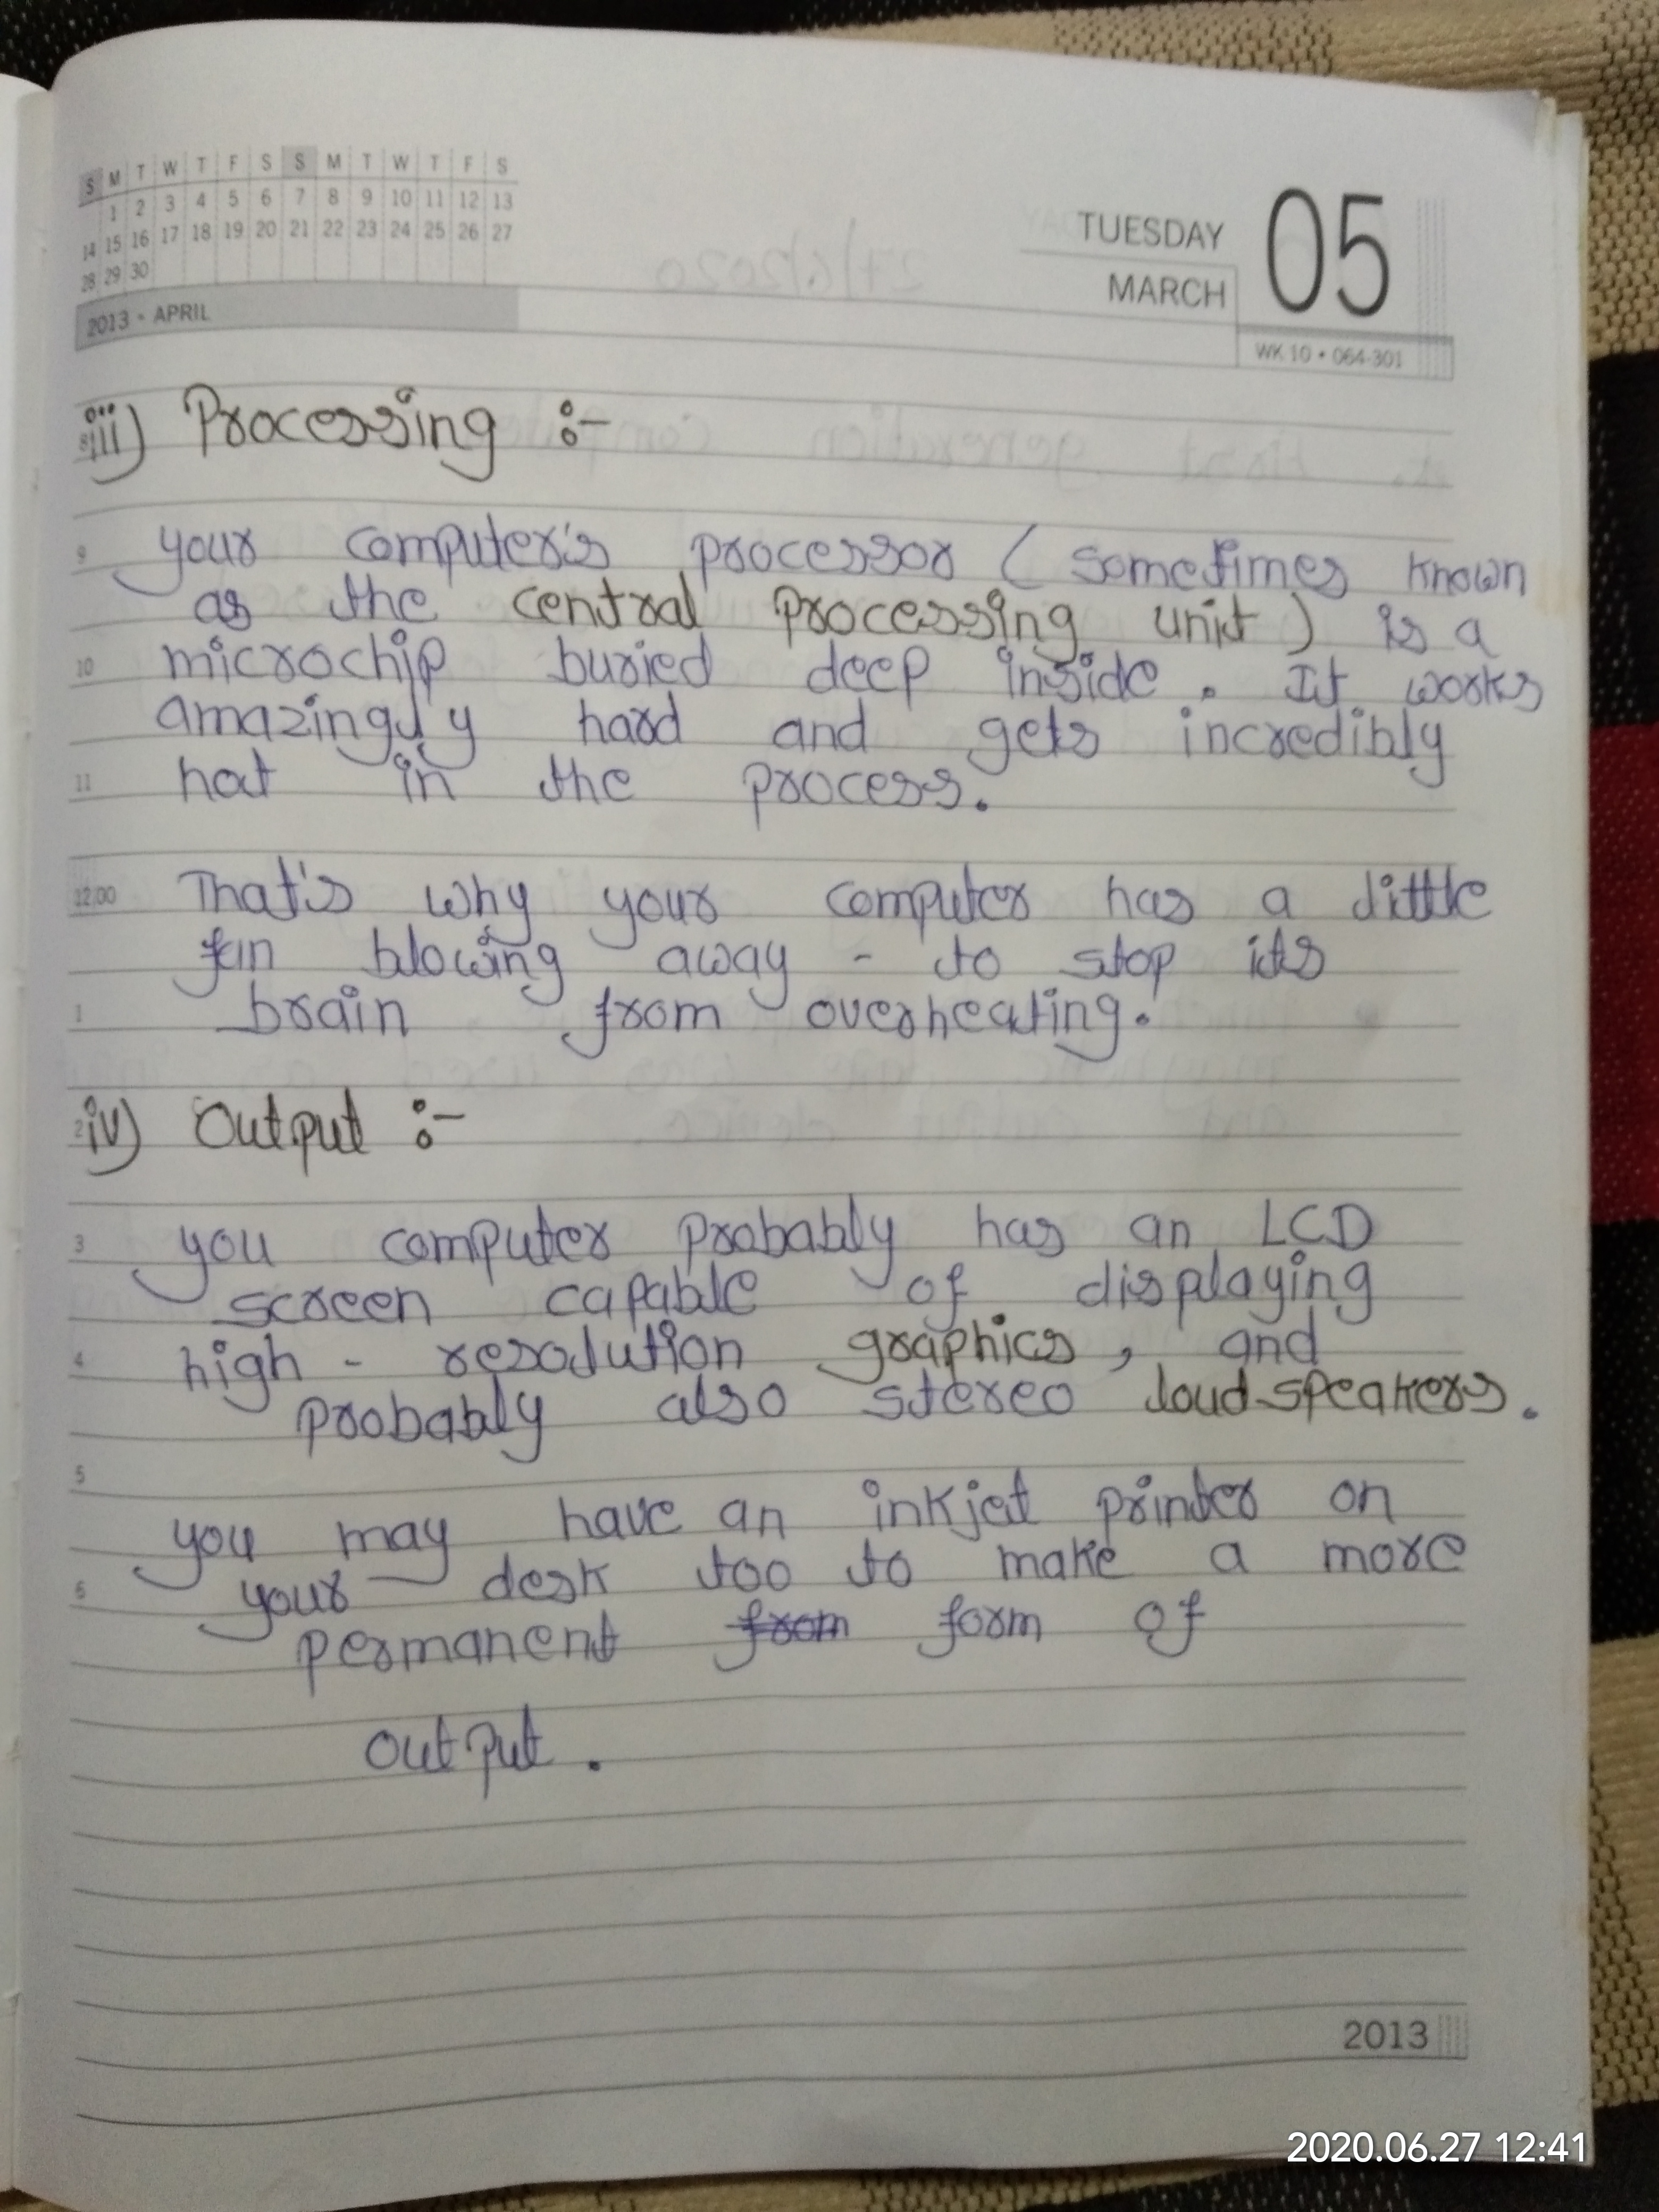 S M T W T F S S M T W T F S
1 2 3 4 5 6 7 8 9 10 11 12 13
14 15 16 17 18 19 20 21 22 23 24 25 26 27
28 29 30
2013 • APRIL
TUESDAY
MARCH
05
WK 10 • 064-301
27/6/2020
iii) Processing :-
9 your computer's processor (sometimes known
as the central processing unit) is a
10 microchip buried deep inside. It works
amazingly hard and gets incredibly
11 hot in the process.
12.00 That's why your computer has a little
fan blowing away - to stop its
1 brain from overheating.
2 iv) Output :-
3 you computer probably has an LCD
screen capable of displaying
4 high - resolution graphics, and
probably also stereo loudspeakers.
5
you may have an inkjet printer on
6 your desk too to make a more
permanent from form of
output.
2013
2020.06.27 12:41